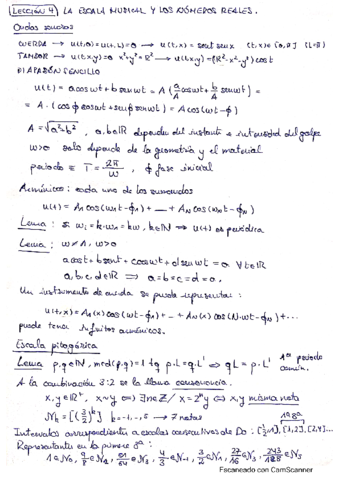 LECCIÓN 4 LA ESCALA MUSICAL Y LOS NÚMEROS REALES.
Ondas sonoras
CUERDA → u(t,0)=u(t,L)=0 → u(t,x)= sent senx (t,x)∈[0,π] (L=π)
TAMBOR → u(t,x,y)=0 x²+y²=R² → u(t,x,y)=(R²-x²-y²) cost
DIAPASÓN SENCILLO
u(t) = a cos wt + b sen wt = A (a/A cos wt + b/A sen wt) =
= A · (cos ϕ cos wt + sen ϕ sen wt) = A cos(wt-ϕ)
A = √a²+b² , a,b∈ℝ depende del instante e intensidad del golpe
w>0 solo depende de la geometría y el material
periodo = T = 2π/w , ϕ fase inicial
Armónicos: cada uno de los sumandos
u(t) = A₁ cos(w₁t-ϕ₁) + ... + A_N cos(w_N t-ϕ_N)
Lema: si w_i = k·w_1 = kw, k∈ℕ ⟹ u(t) es periódica
Lema: w≠1, w>0
a cost + b sent + c cos wt + d sen wt = 0 ∀t∈ℝ
a, b, c, d ∈ℝ ⟹ a=b=c=d=0.
Un instrumento de cuerda se puede representar:
u(t,x) = A₁(x) cos(wt-ϕ₁) + ... + A_N(x) cos(N·wt-ϕ_N) + ...
puede tener infinitos armónicos.
Escala pitagórica
Lema p,q∈ℕ, mcd(p,q)=1 tq p·L=q·L' ⟺ qL = p·L' 1er periodo común.
A la combinación 3:2 se la llama consonancia.
x,y∈ℝ⁺, x~y ⟺ ∃n∈ℤ / x=2ⁿy ⟺ x,y misma nota
N_k = [(3/2)^k] k=-1,...,5 → 7 notas
Intervalos correspondiente a escalas consecutivas de Do: [½,1], [1,2], [2,4]...
Representantes en la primera 8ª:
1∈N₀, 9/8∈N₂, 81/64∈N₄, 4/3∈N₋₁, 3/2∈N₁, 27/16∈N₃, 243/128∈N₅
Escaneado con CamScanner